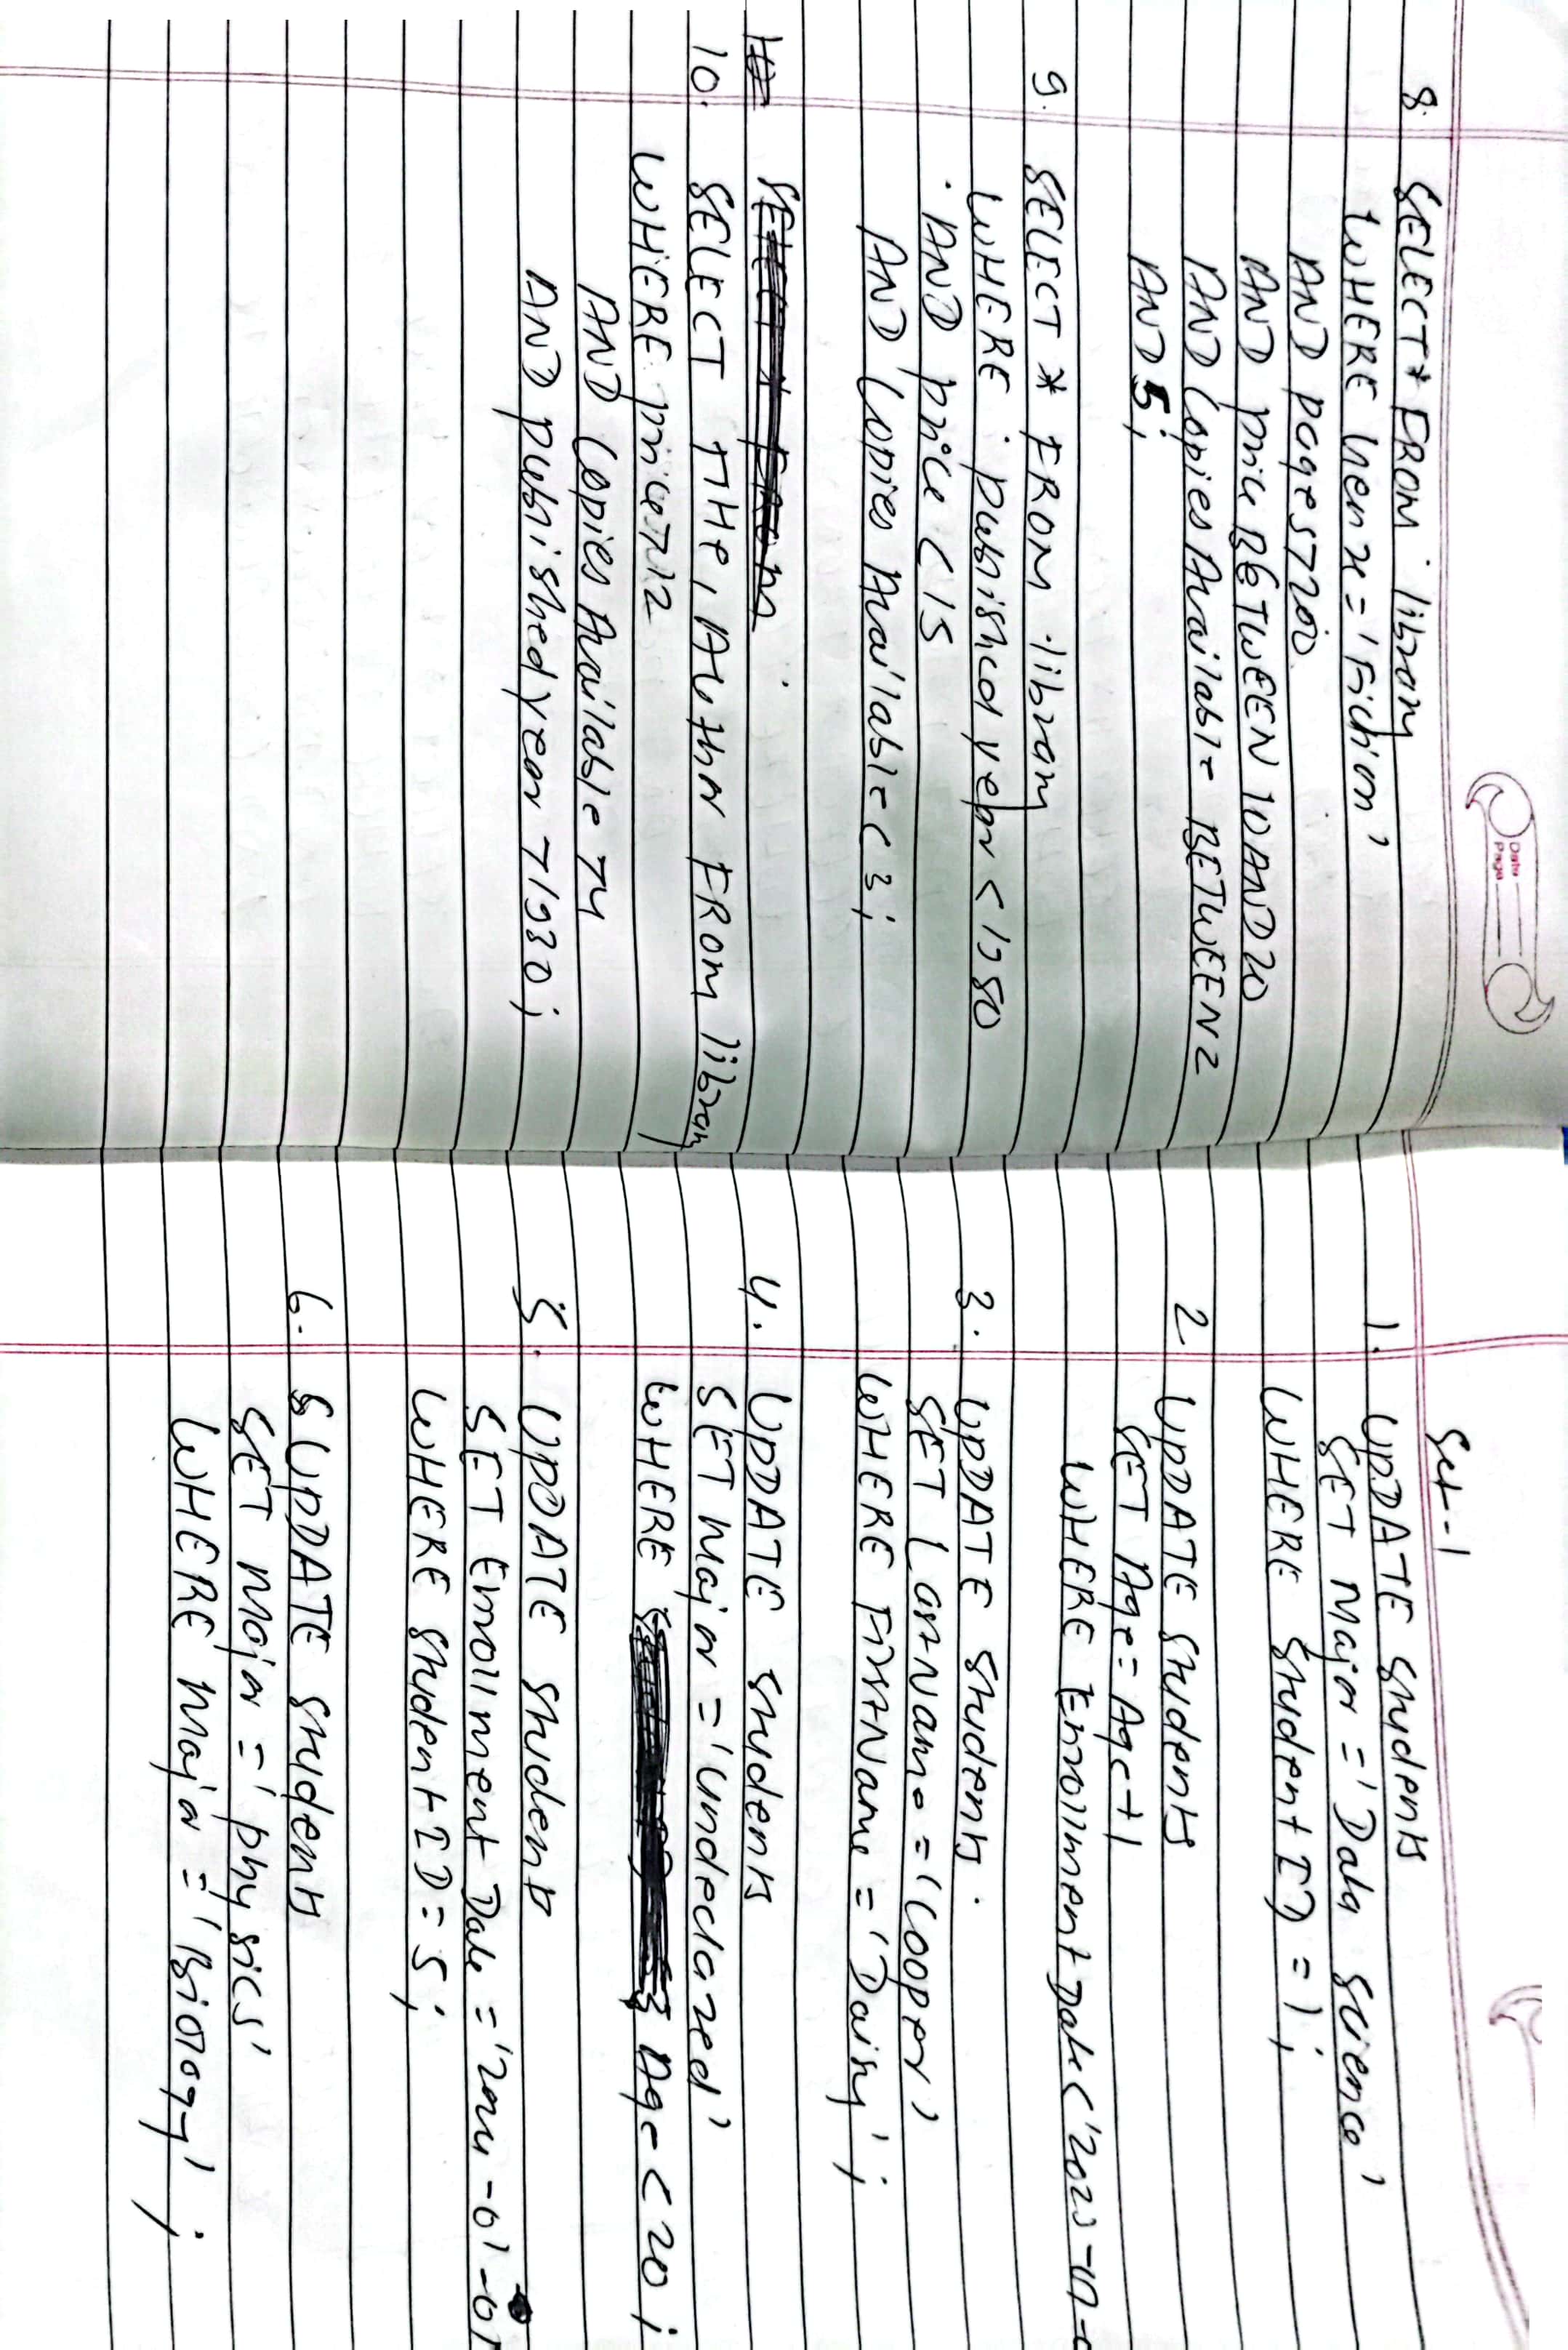 Date
Page
8. SELECT * FROM library
WHERE Genre = 'Fiction'
AND pages > 200
AND price BETWEEN 10 AND 20
AND Copies Available BETWEEN 2
AND 5;
9. SELECT * FROM library
WHERE published year < 1980
AND price < 15
AND Copies Available < 3;
10. SELECT Title, Author FROM library
WHERE price > 12
AND Copies Available > 4
AND published year > 1930;
Set-1
1. UPDATE Students
SET Major = 'Data Science'
WHERE Student ID = 1;
2. UPDATE Students
SET Age = Age + 1
WHERE Enrollment Date <
3. UPDATE Students.
SET LastName = 'Cooper'
WHERE FirstName = 'Daisy';
4. UPDATE Students
SET Major = 'Undeclared'
WHERE Age < 20;
5. UPDATE Students
SET Enrollment Date =
WHERE Student ID = 5;
6. UPDATE Students
SET Major = 'physics'
WHERE Major = 'Biology';